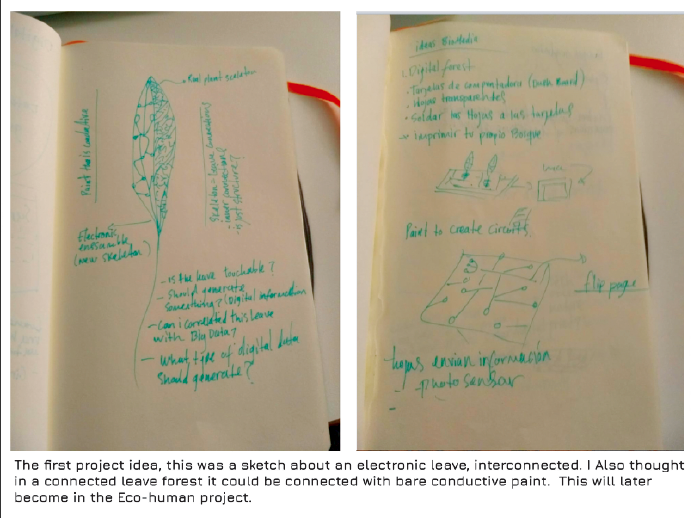 Real plant skeleton
Paint that is conductive
Skeleton = leave connections
inner connections?
is just structure?
Electronic
ensamble
(new skeleton)
- Is the leave touchable?
- Should generate
something? (Digital information
- Can i correlated this leave
with Big Data?
- What type of digital data
should generate?
ideas
1. Digital forest
· Tarjetas de computadora (Dash Board)
· Hojas transparentes
· Soldar las Hojas a las tarjetas
imprimir tu propio Bosque
Paint to create circuits
flip page
hojas envian información
- photo sensor
-
The first project idea, this was a sketch about an electronic leave, interconnected. I Also thought
in a connected leave forest it could be connected with bare conductive paint. This will later
become in the Eco-human project.